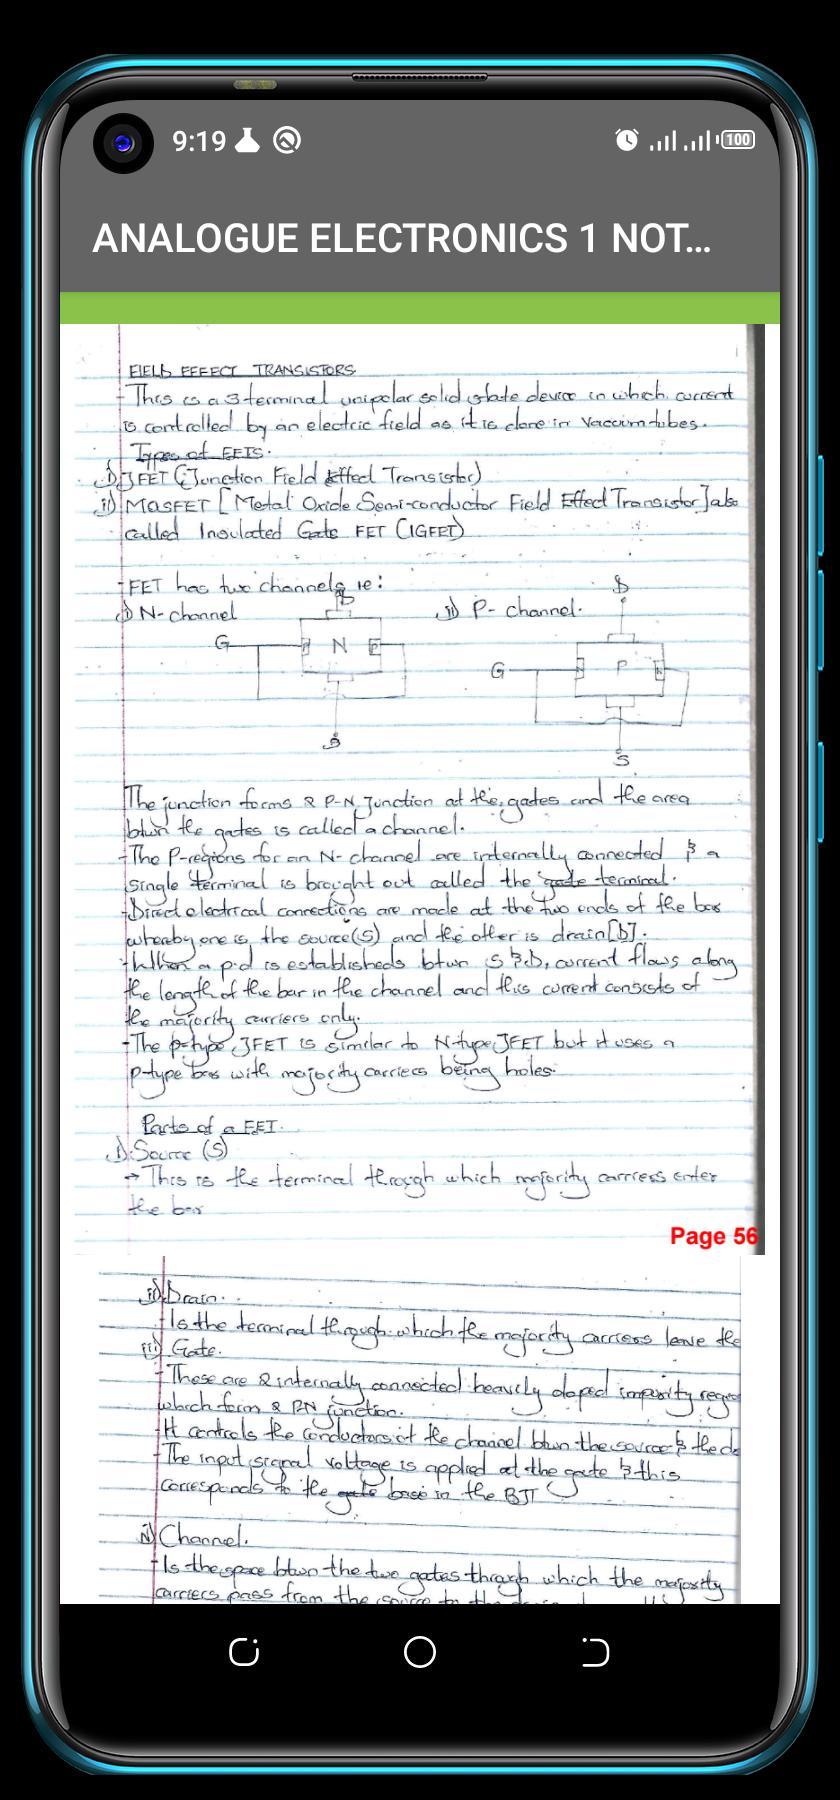 9:19
100
ANALOGUE ELECTRONICS 1 NOT...
FIELD EFFECT TRANSISTORS
- This is a 3 terminal unipolar solid state device in which current
is controlled by an electric field as it is done in vaccum tubes.
Types of FETS.
i) JFET (Junction Field Effect Transistor)
ii) MOSFET [Metal Oxide Semi-conductor Field Effect Transistor] also
called Insulated Gate FET (IGFET)
- FET has two channels ie:
i) N-channel
ii) P-channel.
D
G
P N P
S
D
G
N P N
S
The junction forms 2 P-N Junction at the gates and the area
btwn the gates is called a channel.
- The P-regions for an N-channel are internally connected & a
single terminal is brought out called the gate terminal.
- Direct electrical connections are made at the two ends of the bar
whereby one is the source(S) and the other is drain[D].
- When a p.d is established btwn S & D, current flows along
the length of the bar in the channel and this current consists of
the majority carriers only.
- The p-type JFET is similar to N-type JFET but it uses a
p-type bar with majority carriers being holes.
Parts of a FET.
i) Source (S)
→ This is the terminal through which majority carriers enter
the bar
Page 56
ii) Drain.
- Is the terminal through which the majority carriers leave the
iii) Gate.
- These are 2 internally connected heavily doped impurity
which form 2 PN junction.
- It controls the of the channel btwn the source & the
- The input signal voltage is applied at the gate & this
corresponds to the gate base in the BJT
iv) Channel.
- Is the space btwn the two gates through which the majority
carriers pass from the source to the